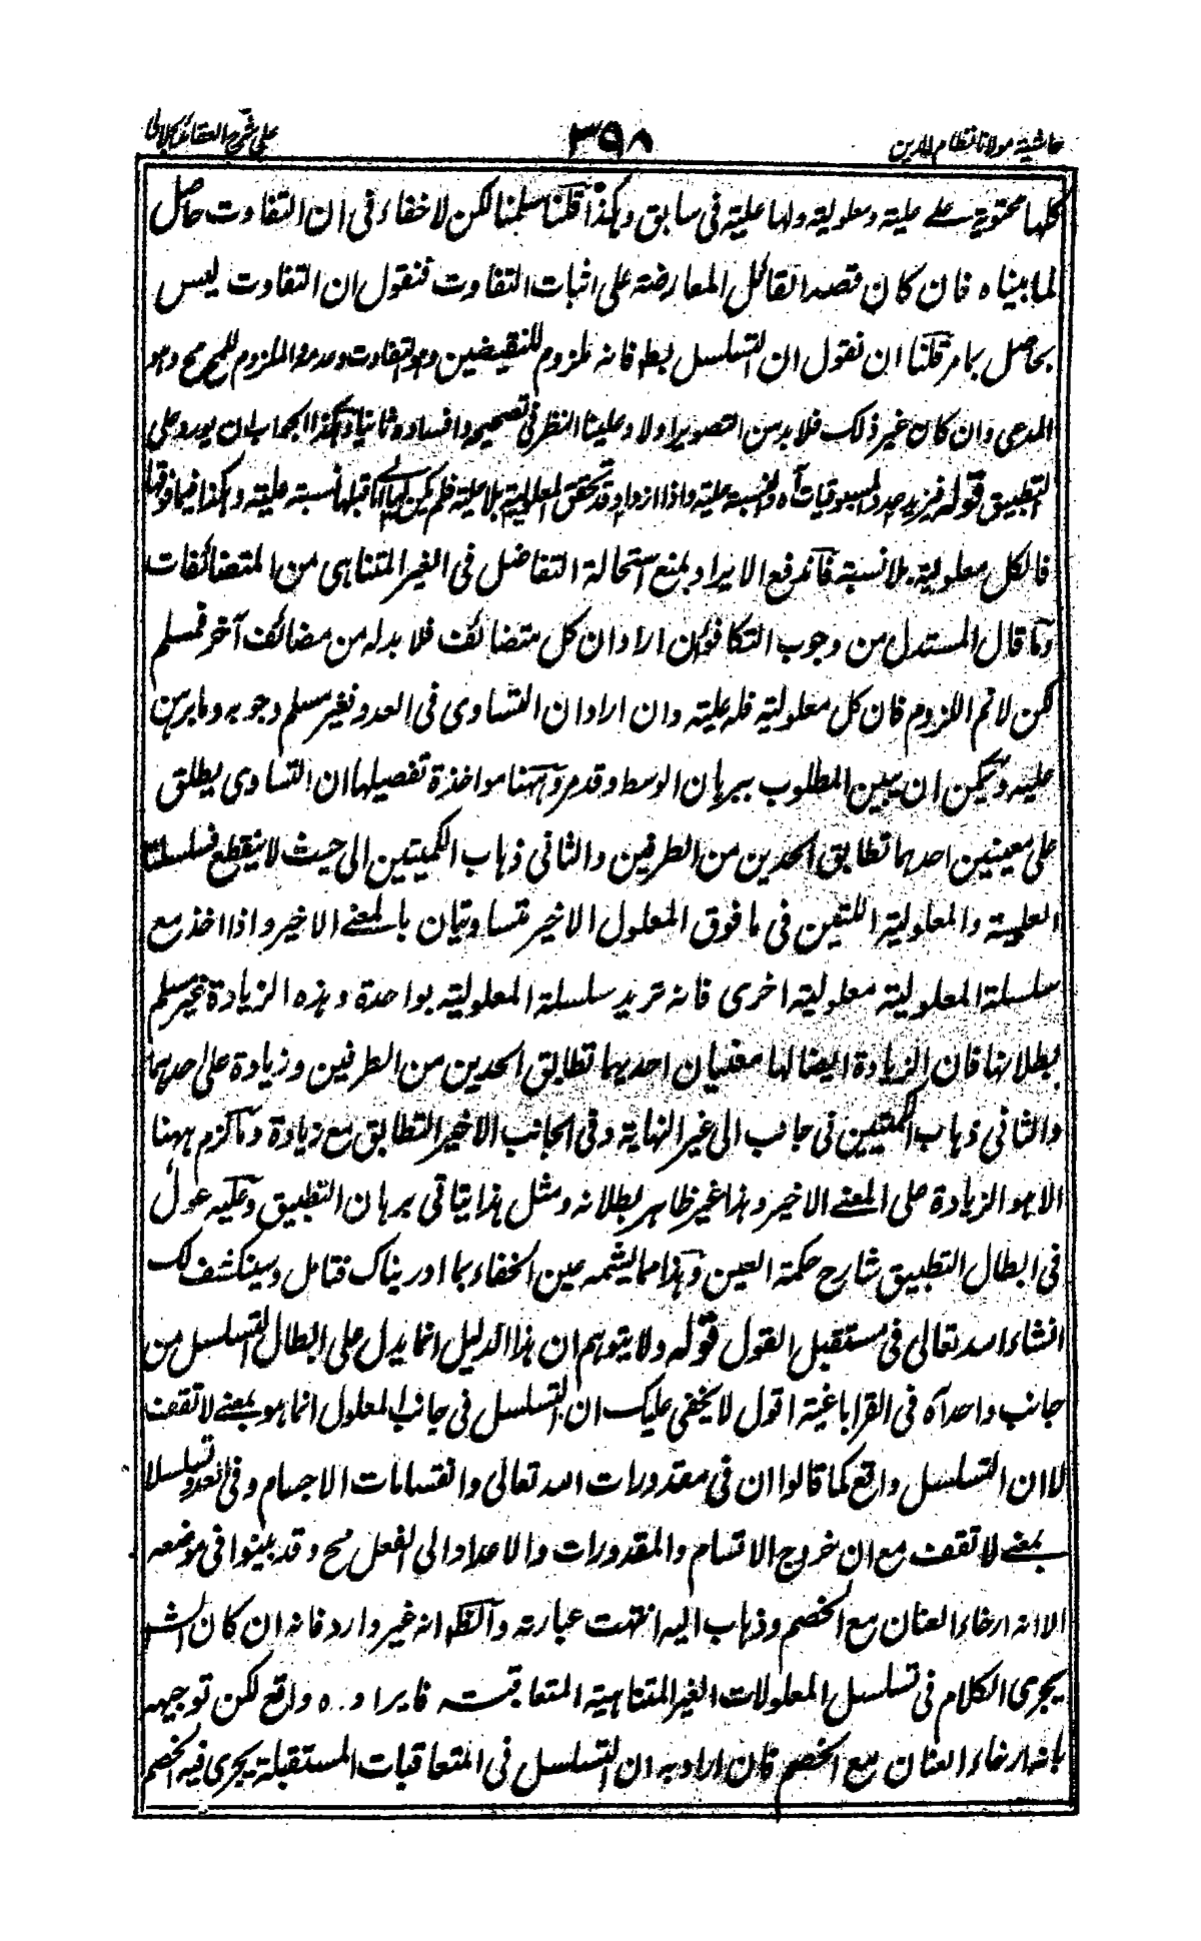 حاشیة مولانا نظام الدین
۳۹۸
علی شرح العقائد الجلالی
کلها محتویة علی علیة ومعلولیة ولها علیة فی سابق وهکذا قلنا سلمنا لکن لا خفاء فی ان التفاوت حاصل
لما بیناه فان کان قصد القائل المعارضة علی اثبات التفاوت فنقول ان التفاوت لیس
بحاصل بما مر قلنا ان نقول ان التسلسل بط فانه ملزوم للنقیضین وهو التفاوت وعدمه والملزوم للمح مح وهو
المدعی وان کان غیر ذلک فلا بد من التصویر اولا وعلینا النظر فی تصحیحه وافساده ثانیا وهکذا الجواب لن یورد علی
التطبیق قوله فیزید عدد المسبوقیات آه والنسبة علیة واذا ازداد وقد تحقق المعلولیة بلا علیة فلم یکن لها الی ما قبلها نسبة علیة وهکذا فیما فوقها
فالکل معلولیة بلا نسبة فاندفع الایراد بمنع استحالة التفاضل فی الغیر المتناهی من المتضائفات
وما قال المستدل من وجوب التکافؤ ان اراد ان کل متضائف فلا بد له من مضائف آخر فمسلم
لکن لا تم اللزوم فان کل معلولیة فله علیة وان اراد ان التساوی فی العدد فغیر مسلم وجوبه وما برهن
علیه ویمکن ان یبین المطلوب ببرهان الوسط وقد مر وههنا مواخذة تفصیلها ان التساوی یطلق
علی معنیین احدهما تطابق الحدین من الطرفین والثانی ذهاب الکمیتین الی حیث لا ینقطع فسلسلتا
العلیة والمعلولیة اللتین فی ما فوق المعلول الاخیر متساویتان بالمعنے الاخیر واذا اخذ مع
سلسلة المعلولیة معلولیة اخری فانه تزید سلسلة المعلولیة بواحدة وهذه الزیادة غیر مسلم
بطلانها فان الزیادة ایضا لها معنیان احدیهما تطابق الحدین من الطرفین وزیادة علی احدیهما
والثانی ذهاب الکمیتین فی جانب الی غیر النهایة وفی الجانب الاخیر التطابق مع زیادة وما لزم ههنا
الا هو الزیادة علی المعنے الاخیر وهذا غیر ظاهر بطلانه ومثل هذا یتاتی برهان التطبیق وعلیه عول
فی ابطال التطبیق شارح حکمة العین وهذا مما یشمه عین الخفاء بما اوریناک فتامل وسینکشف لک
انشاء الله تعالی فی مستقبل القول قوله ولا یتوهم ان هذا الدلیل انما یدل علی ابطال التسلسل من
جانب واحد آه فی القراباغیة اقول لا یخفی علیک ان التسلسل فی جانب المعلول انما هو بمعنے لا تقف
لا ان التسلسل واقع کما قالوا ان فی مقدورات الله تعالی وانقسامات الاجسام وفی العدد تسلسلا
بمعنے لا تقف مع ان خروج الاقسام والمقدورات والاعداد الی الفعل مح وقد بینوا فی موضعه
الا انه ارخاء العنان مع الخصم وذهاب الیه انتهت عبارته والظ انه غیر وارد فانه ان کان الش
یجری الکلام فی تسلسل المعلولات الغیر المتناهیة المتعاقبة فایراده واقع لکن توجیهه
بانه ارخاء العنان مع الخصم فان اراد به ان التسلسل فی المتعاقبات المستقبلة یجری فیه الخصم